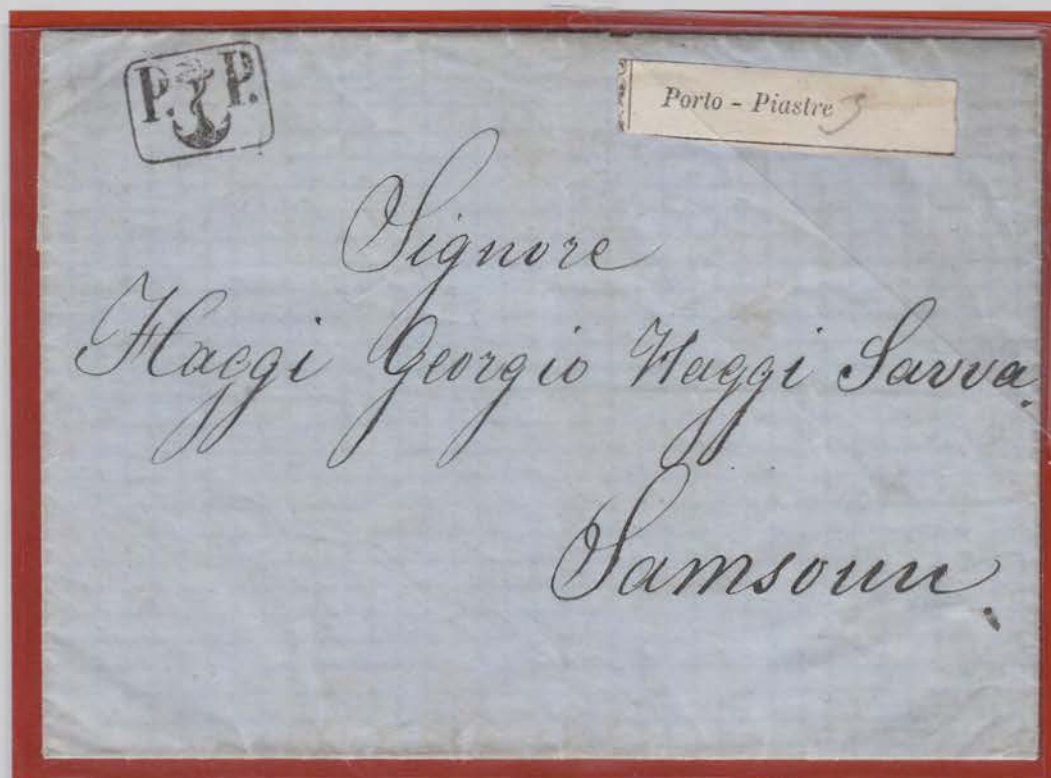 P. P.
Porto - Piastre 5
Signore
Haggi Georgio Haggi Savva.
Samsoun.